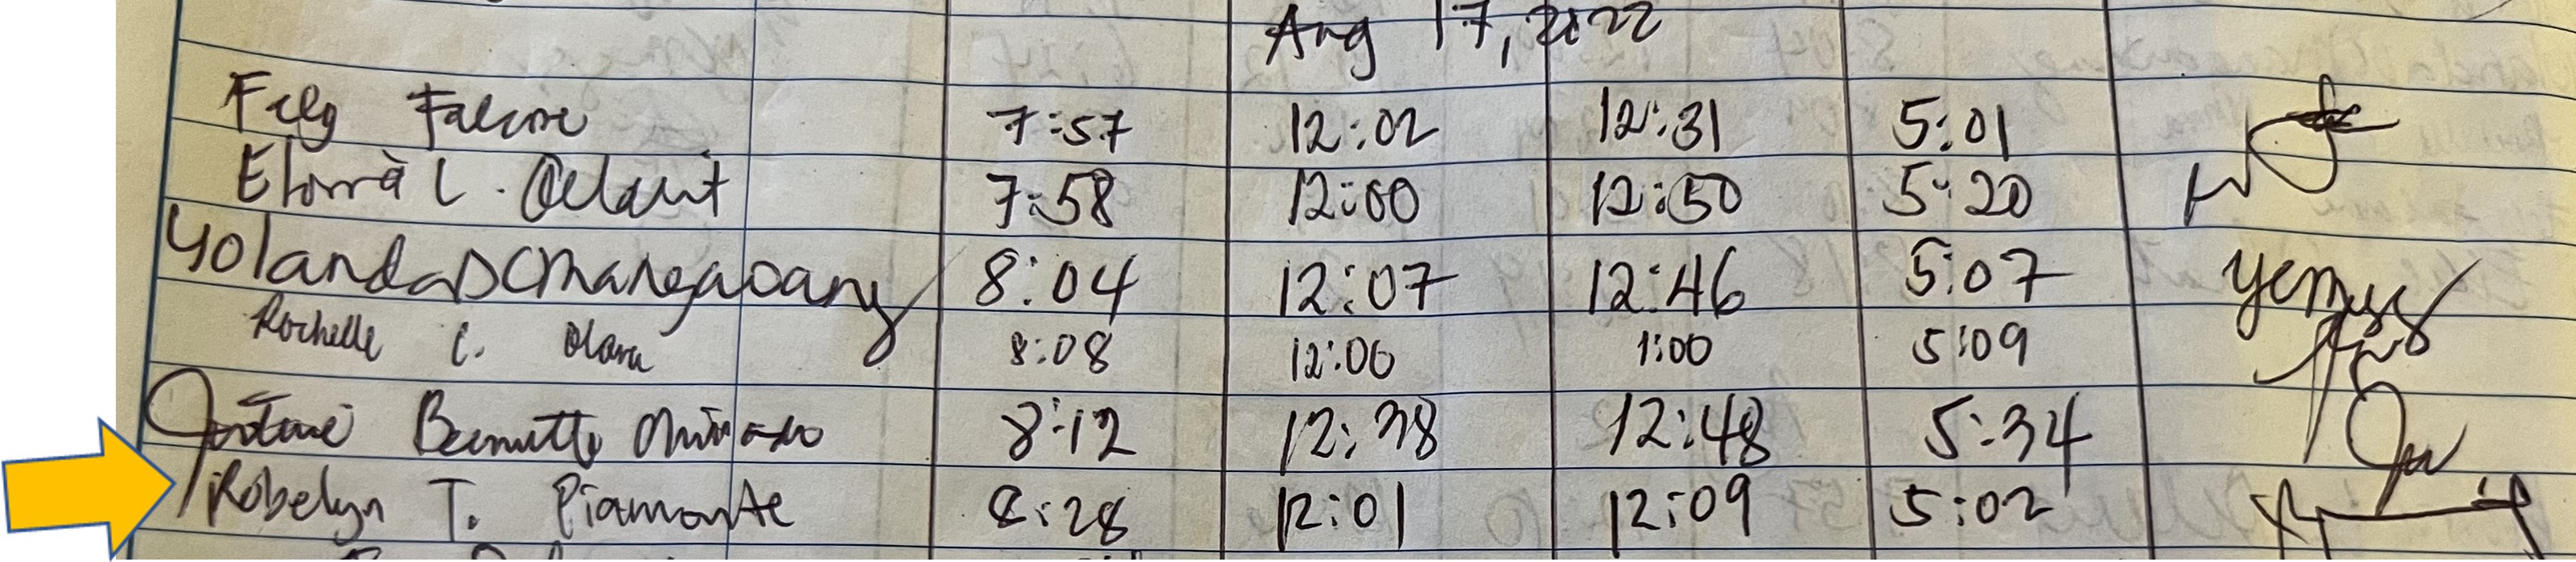 Aug 17, 2022
Fely Falcone 7:57 12:02 12:31 5:01
L. 7:58 12:00 12:50 5:20
Yolanda DC Mangaoang 8:04 12:07 12:46 5:07
Rochelle C. Olana 8:08 12:00 1:00 5:09
8:12 12:38 12:48 5:34
Robelyn T. Piamonte 8:28 12:01 12:09 5:02